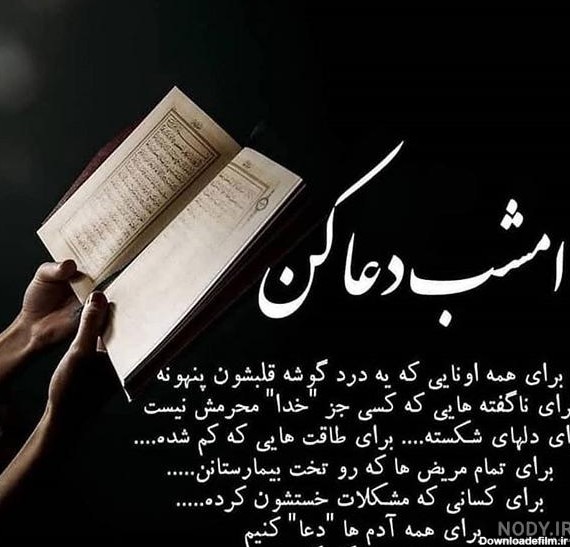 امشب دعا کن
برای همه اونایی که یه درد گوشه قلبشون پنهونه
رای ناگفته هایی که کسی جز "خدا" محرمش نیست
ای دلهای شکسته.... برای طاقت هایی که کم شده....
برای تمام مریض ها که رو تخت بیمارستانن.....
برای کسانی که مشکلات خستشون کرده.....
برای همه آدم ها "دعا" کنیم
NODY.IR
Downloadefilm.ir